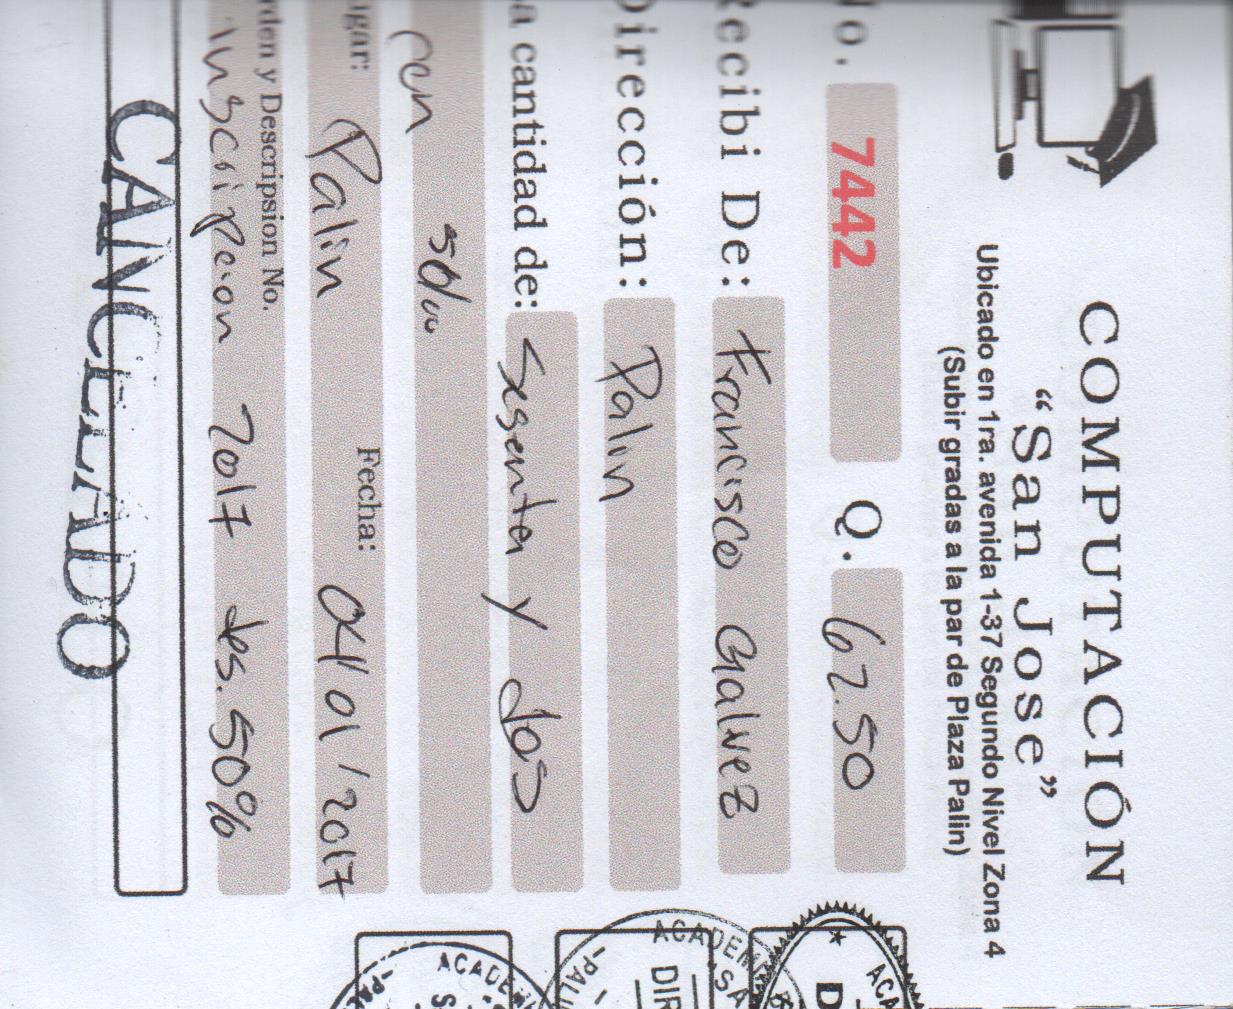 COMPUTACIÓN
“San Jose”
Ubicado en 1ra. avenida 1-37 Segundo Nivel Zona 4
(Subir gradas a la par de Plaza Palin)
No. 7442 Q. 62.50
Recibi De: Francisco Galvez
Dirección: Palin
a cantidad de: Sesenta y dos
con 50/00
gar: Palin Fecha: 04/01/2017
rden y Descripsion No.
inscripcion 2017 des. 50%
CANCELADO
ACADEM
SA
DIR
PALI
ACA
D
ACADEM
S
PAL